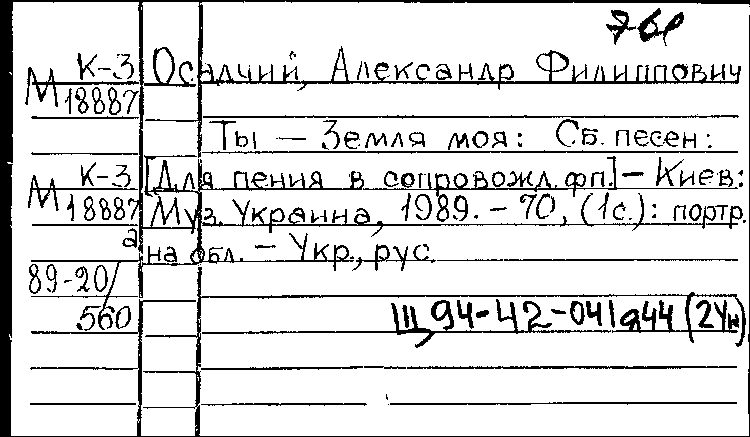 К-3 Осадчий, Александр Филиппович
М 18887
Ты — Земля моя: Сб. песен:
К-3 [Для пения в сопровожд. фп.] — Киев:
М 18887 Муз. Украина, 1989. - 70, (1с.): портр.
а на обл. — Укр., рус.
89-20/
560 Щ 94-42-041 я44 (2Ук)